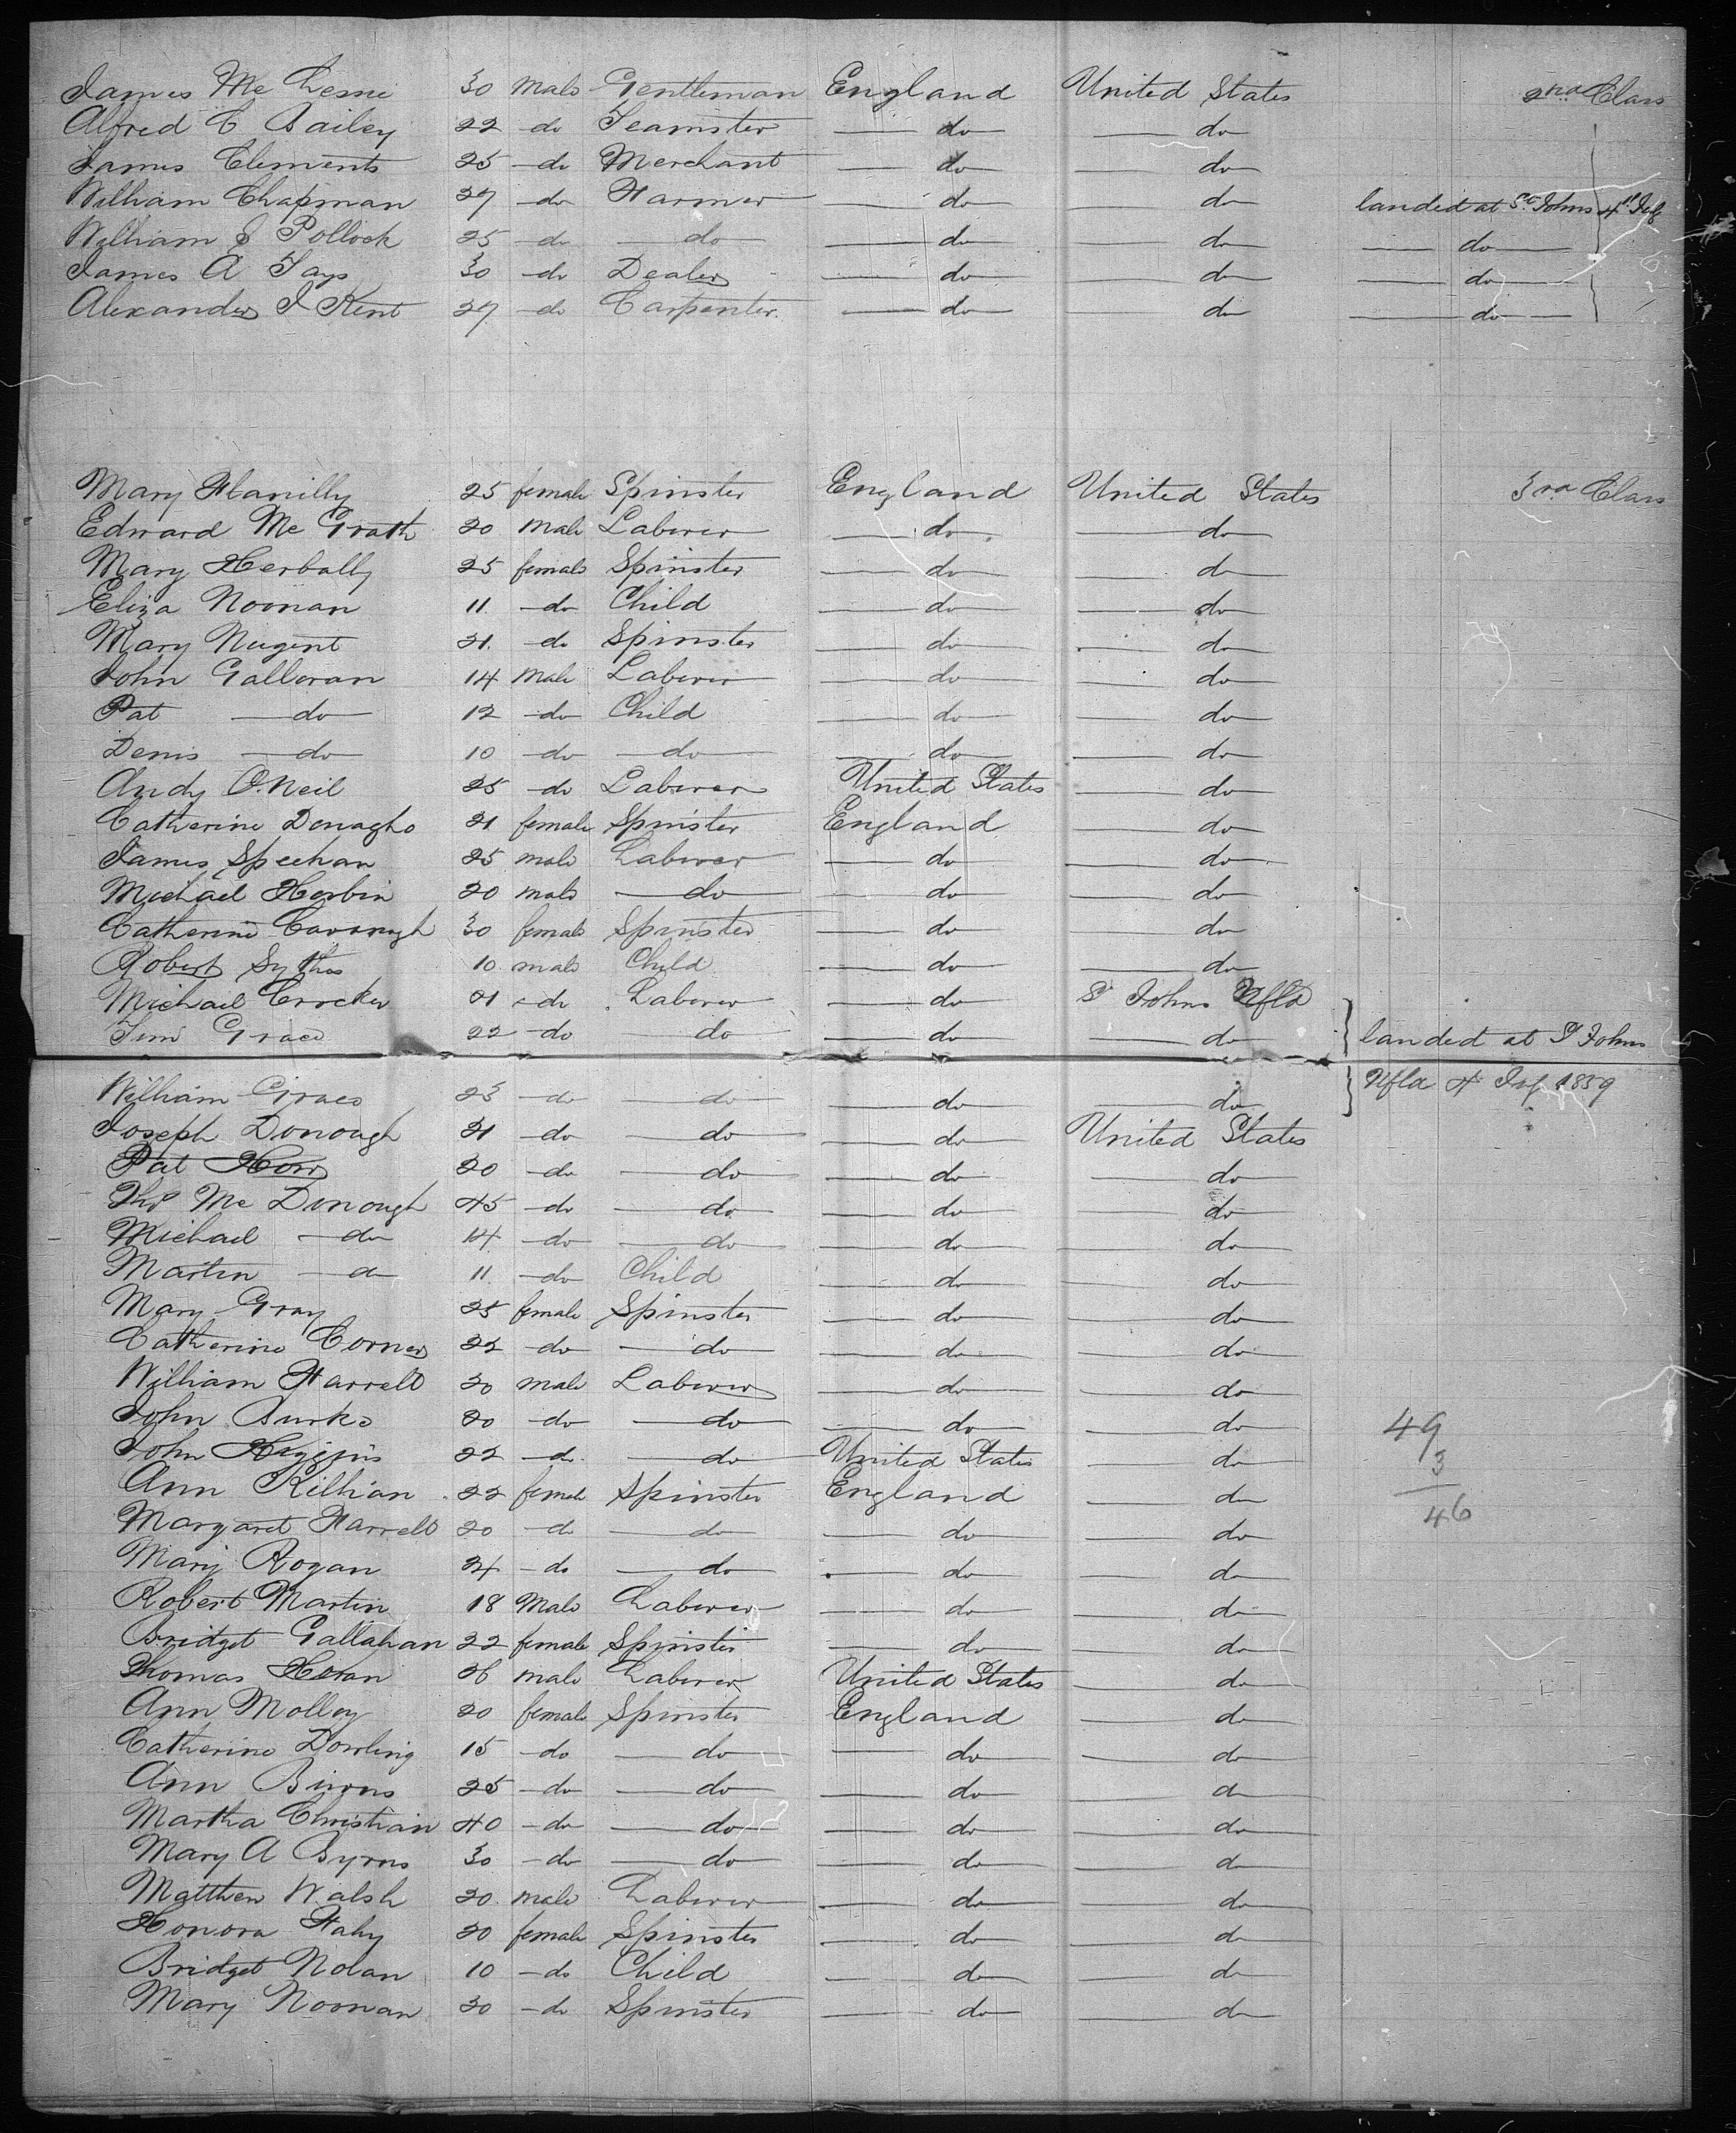 James Mc Lesne 30 Male Gentleman England United States 2nd Class
Alfred C Bailey 22 do Teamster do do
James Clements 25 do Merchant do do
William Chapman 27 do Farmer do do landed at St Johns 4th July
William J Pollock 25 do do do do do
James A Tays 30 do Dealer do do do
Alexander J Kent 27 do Carpenter do do do
Mary Flanilly 25 female Spinster England United States 3rd Class
Edward Mc Grath 20 Male Laborer do do
Mary Herbally 25 female Spinster do do
Eliza Noonan 11 do Child do do
Mary Nugent 21 do Spinster do do
John Galloran 14 Male Laborer do do
Pat do 12 do Child do do
Denis do 10 do do do do
Andy O.Neil 25 do Laborer United States do
Catherine Donagho 21 female Spinster England do
James Speehan 25 male Laborer do do
Michael Herbin 20 male do do do
Catherine Cavanagh 30 female Spinster do do
Robert Sythes 10 male Child do do
Michael Crocker 21 do Laborer do St Johns Nfld
Tim Grace 22 do do do do landed at St Johns
William Grace 23 do do do do Nfld 4 July 1859
Joseph Donough 21 do do do United States
Pat How 20 do do do do
Thos Mc Donough 45 do do do do
Michael do 14 do do do do
Martin do 11 do Child do do
Mary Gray 25 female Spinster do do
Catherine Corner 22 do do do do
William Farrell 20 male Laborer do do
John Burke 20 do do do do
John Higgins 22 do do United States do 49
Ann Killian 22 female Spinster England do 3
Margaret Farrell 20 do do do do 46
Mary Rogan 24 do do do do
Robert Martin 18 Male Laborer do do
Bridget Gallahan 22 female Spinster do do
Thomas Horan 26 male Laborer United States do
Ann Molloy 20 female Spinster England do
Catherine Dowling 15 do do do do
Ann Burns 25 do do do do
Martha Christian 40 do do do do
Mary A Byrns 30 do do do do
Matthew Walsh 20 male Laborer do do
Honora Fahy 20 female Spinster do do
Bridget Nolan 10 do Child do do
Mary Noonan 30 do Spinster do do